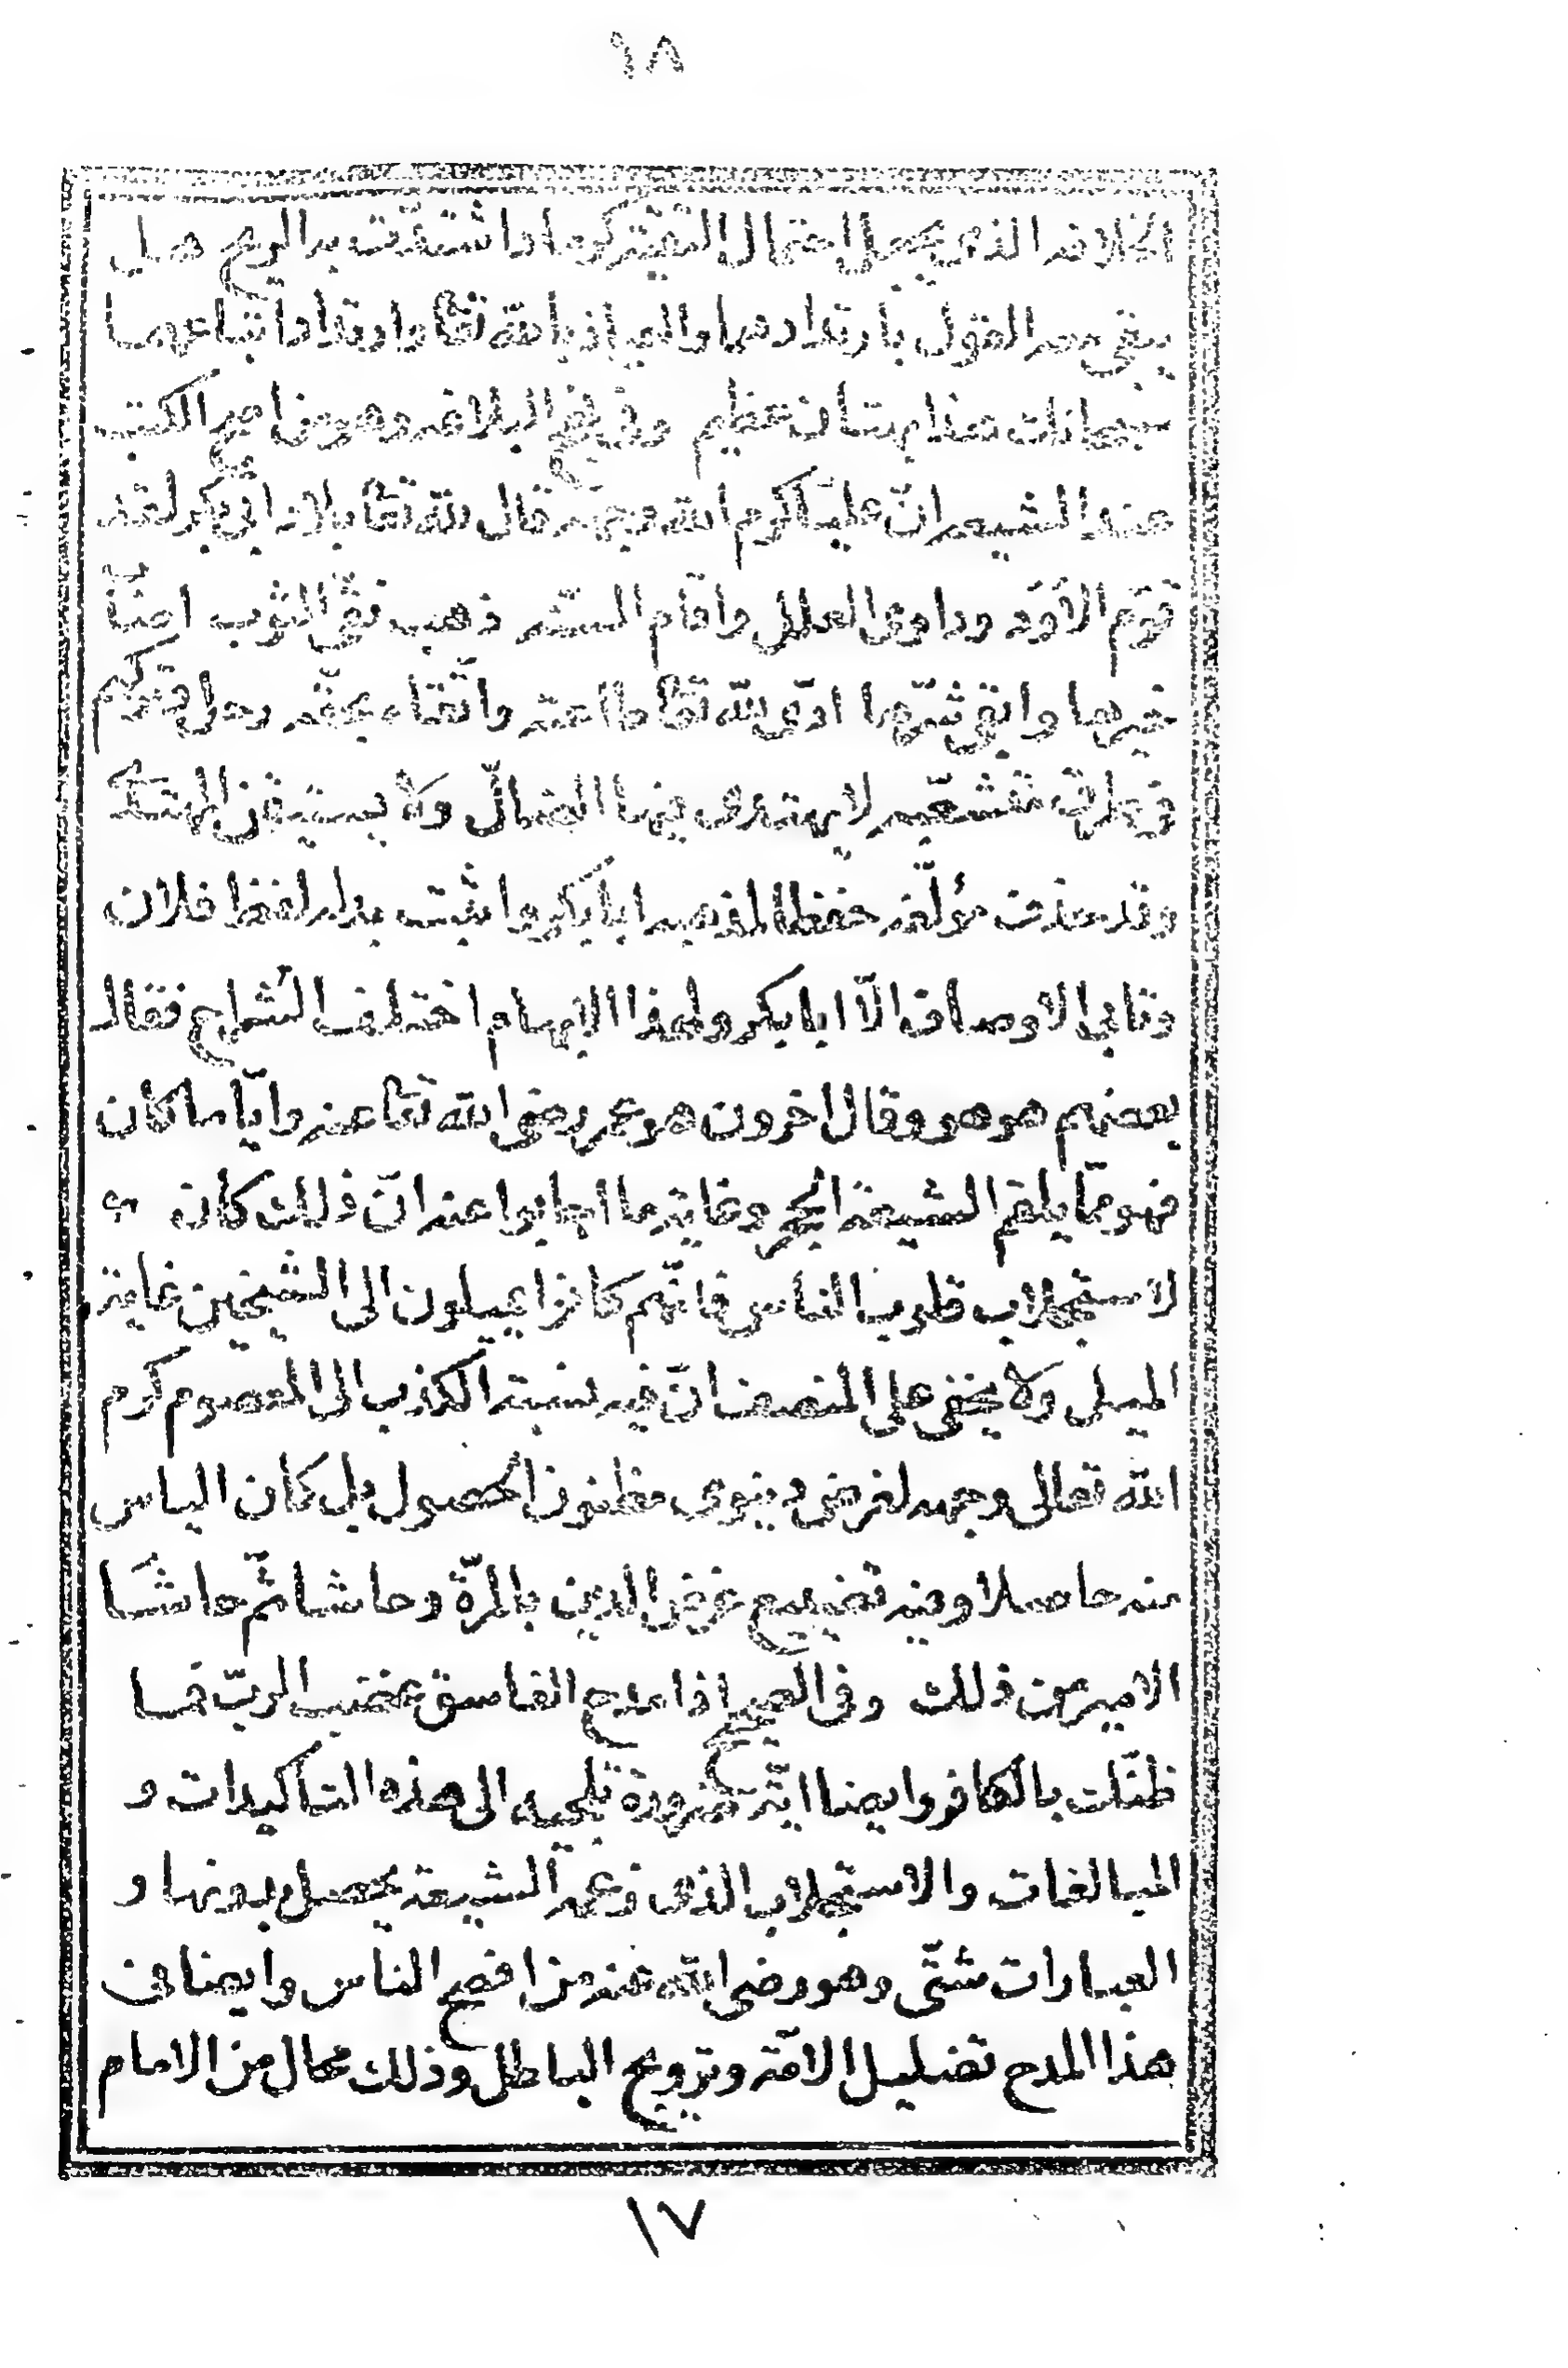 ٩٨
الخلافه الذى يجعل احتمال التقية كرماد اشتدت به الريح هل
يبقى معه القول بارتدادهما والعياذ بالله تعا وارتداد اتباعهما
سبحانك هذا بهتان عظيم وفى نهج البلاغه وهو من اصح الكتب
عند الشيعه انّ عليّا كرم الله وجهه قال لله تعا بلاد ابى بكر لقد
قوّم الأود وداوى العلل واقام السنّه ذهب نقىّ الثوب اصاب
خيرها واتقى شرّها ادّى لله تعا طاعته واتّقاه بحقّه رحل وتركهم
فى طرق متشعّبه لا يهتدى فيها الضالّ ولا يستيقن المهتد
وقد حذف مؤلّفه حفظا لمذهبه ابا بكر واثبت بدله لفظ فلان
وتابى الاوصاف الّا ابا بكر ولهذا الابهام اختلف الشراح فقال
بعضهم هو هو وقال اخرون هو عمر رضى الله تعا عنه وايّا ما كان
فهو ممّا يلقم الشيعة الحجر وغاية ما اجابوا عنه انّ ذلك كان
لاستجلاب قلوب الناس فانّهم كانوا يميلون الى الشيخين غاية
الميل ولا يخفى على المنصف انّ فيه نسبة الكذب الى المعصوم كرم
الله تعالى وجهه لغرض دنيوى مظنون الحصول بل كان الياس
منه حاصلا وفيه تضييع غرض الدين بالمرّة وحاشا ثم حاشا
الامير من ذلك وفى الصحيح اذا مدح الفاسق غضب الربّ فما
ظنّك بالكافر وايضا ايّة ضرورة تلجيه الى هذه التاكيدات و
المبالغات والاستجلاب الذى زعمه الشيعة يحصل بدونها و
العبارات شتّى وهو رضى الله عنه من افصح الناس وايضا فى
هذا المدح تضليل الامّة وترويج الباطل وذلك محال من الامام
١٧